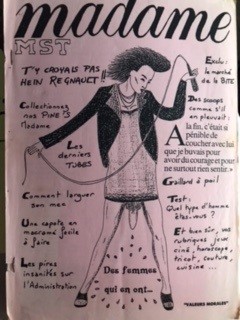 madame
MST
T'Y CROYAIS PAS
HEIN REGNAULT !!
Collectionnez
nos PINE'S
Madame
Les
derniers
TUBES
Comment larguer
son mec
Une capote en
macramé facile
à faire
Les pires
insanités sur
l'Administration
Exclusif
le marché
de la BITE
Des scoops
comme s'il
en pleuvait :
A la fin, c'était si
pénible de
coucher avec lui
que je buvais pour
avoir du courage et pour
ne surtout rien sentir.»
Gaillard à poil
Test :
Quel type d'homme
êtes-vous ?
Et bien sûr, vos
rubriques jeux
ciné, horoscope,
tricot, couture,
cuisine ...
Des femmes
qui en ont...
"VALEURS MORALES"